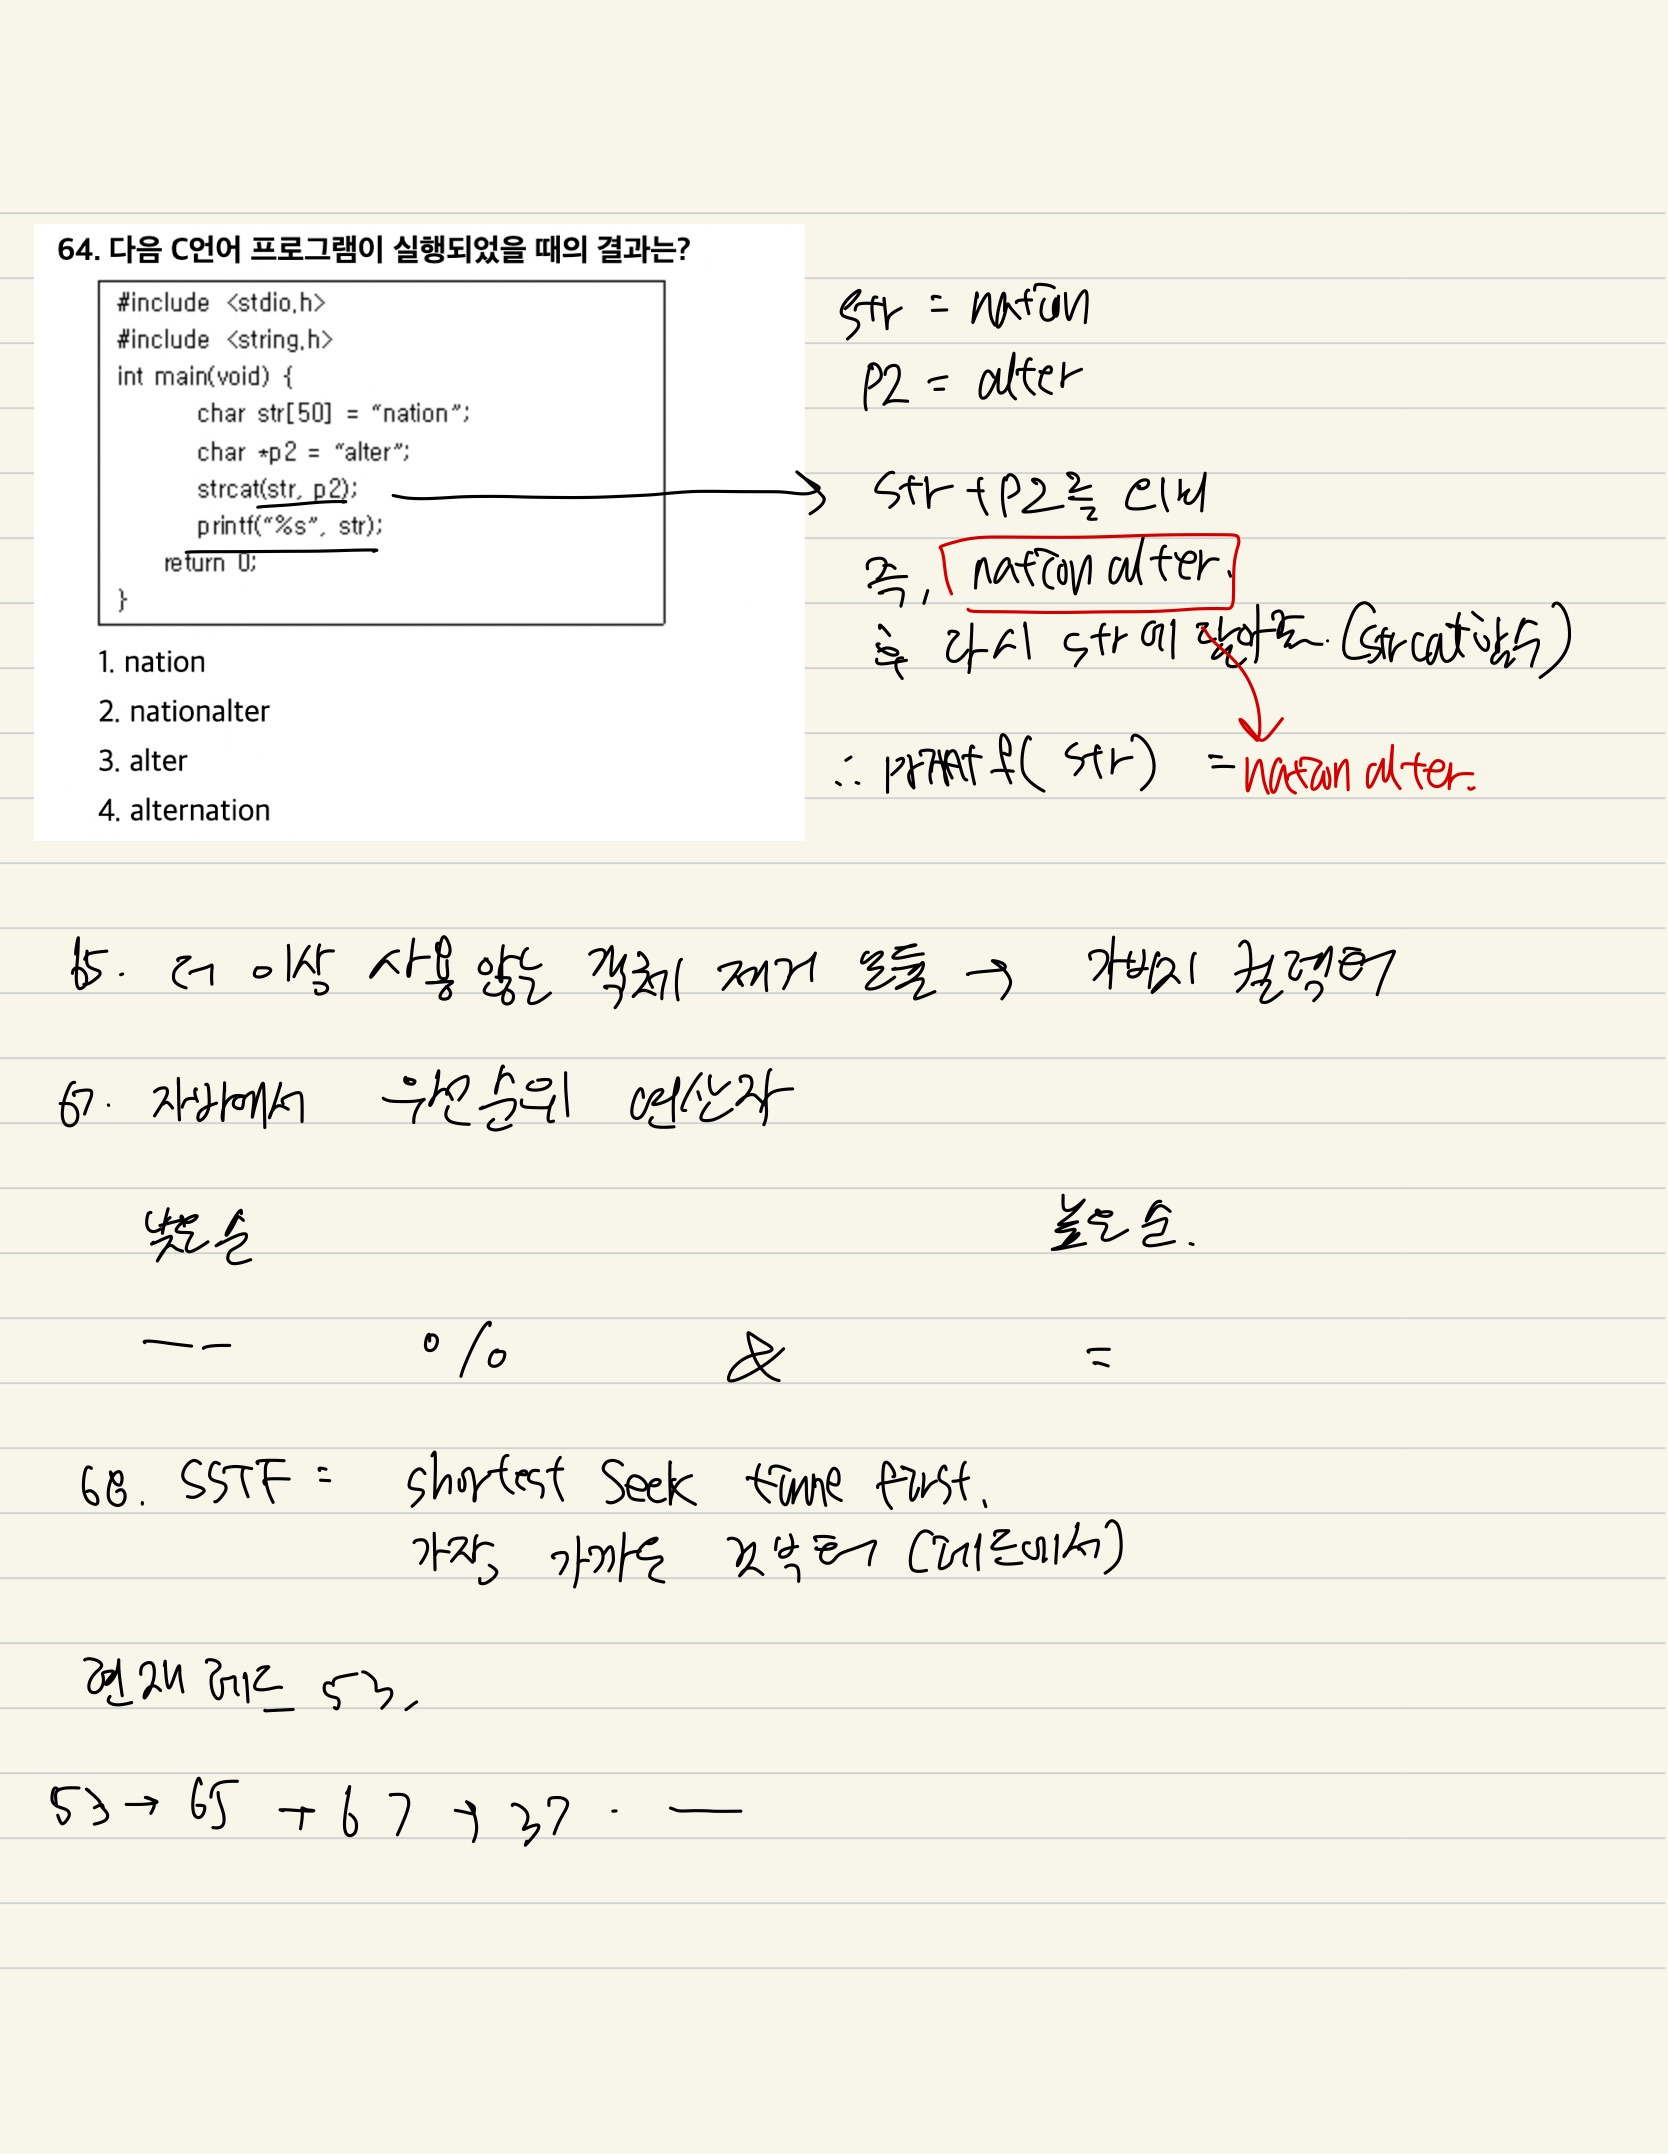 64. 다음 C언어 프로그램이 실행되었을 때의 결과는?
#include <stdio.h>
#include <string.h>
int main(void) {
char str[50] = "nation";
char *p2 = "alter";
strcat(str, p2);
printf("%s", str);
return 0;
}
1. nation
2. nationalter
3. alter
4. alternation
str = nation
P2 = alter
str + P2를 더해
즉, nation alter.
후 다시 str에 담아줌. (strcat함수)
∴ printf( str) = nation alter.
65. 더 이상 사용 않는 객체 제거 모듈 → 가비지 컬렉터
67. 자바에서 우선순위 연산자
낮은순 높은 순.
-- % & =
68. SSTF = shortest Seek time first.
가장 가까운 것부터 (헤드에서)
현재 헤드 53,
53 → 65 → 67 → 37 · —